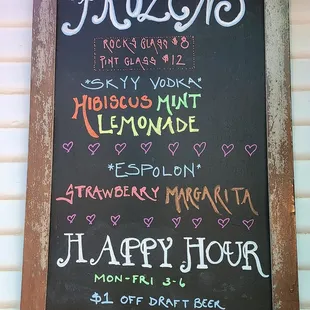 FROZENS
ROCKS GLASS $8
PINT GLASS $12
*SKYY VODKA*
HIBISCUS MINT
LEMONADE
*ESPOLON*
STRAWBERRY MARGARITA
HAPPY HOUR
MON-FRI 3-6
$1 OFF DRAFT BEER